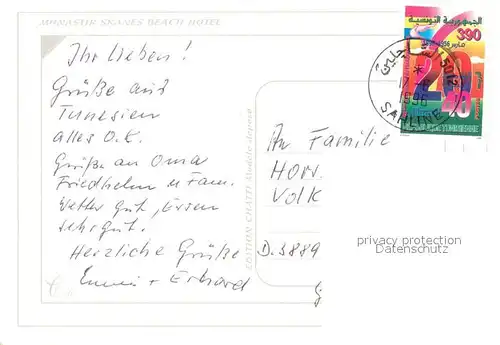 MONASTIR SKANES BEACH HOTEL
Ihr Lieben!
Grüße aus
Tunesien
alles O.K.
Grüße an Oma
Friedhelm u Fam.
Wetter gut, Essen
sehr gut.
Herzliche Grüße
Emmi + Erhard
EDITION CHATTI Modèle déposé
الجمهورية التونسية
390
1996 مارس
20
40
1996
SAHLINE
An Familie
Horr
Volk
D.3889
privacy protection
Datenschutz